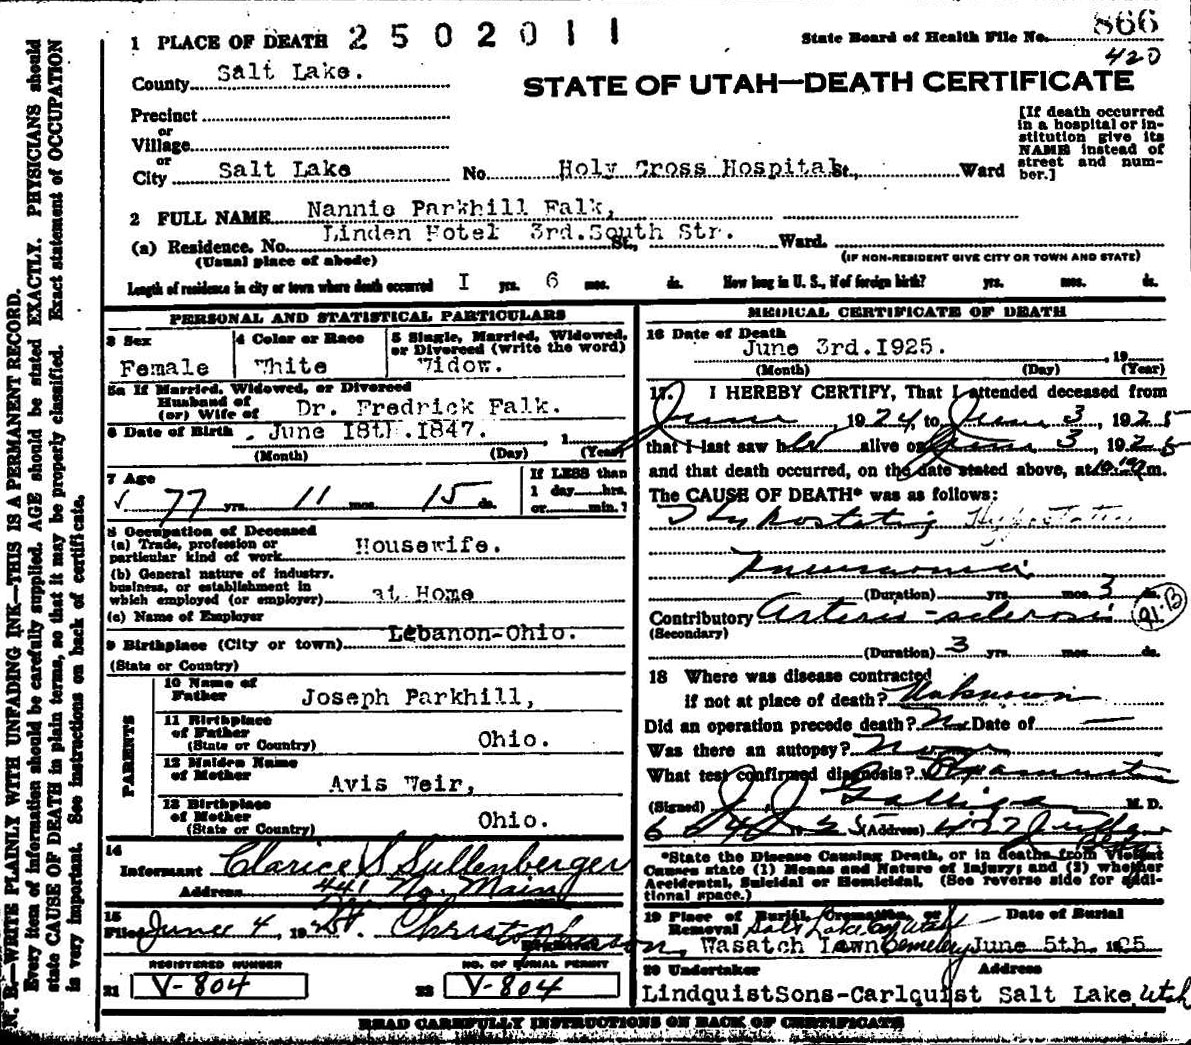 866
1 PLACE OF DEATH 2 5 0 2 0 1 1 State Board of Health File No.
420
County Salt Lake.
STATE OF UTAH—DEATH CERTIFICATE
Precinct
or
Village
or
City Salt Lake No. Holy Cross Hospital St., Ward
[If death occurred
in a hospital or in-
stitution give its
NAME instead of
street and num-
ber.]
2 FULL NAME Nannie Parkhill Falk,
(a) Residence. No. Linden Hotel 3rd.South Str. St., Ward.
(Usual place of abode) (IF NON-RESIDENT GIVE CITY OR TOWN AND STATE)
Length of residence in city or town where death occurred I yrs. 6 mos. ds. How long in U. S., if of foreign birth? yrs. mos. ds.
PERSONAL AND STATISTICAL PARTICULARS
3 Sex 4 Color or Race 5 Single, Married, Widowed,
or Divorced (write the word)
Female White Widow.
5a If Married, Widowed, or Divorced
Husband of
(or) Wife of Dr. Fredrick Falk.
6 Date of Birth June I8th.I847. , 1
(Month) (Day) (Year)
7 Age If LESS than
77 yrs. 11 mos. 15 ds. 1 day hrs.
or min.?
8 Occupation of Deceased
(a) Trade, profession or
particular kind of work Housewife.
(b) General nature of industry,
business, or establishment in
which employed (or employer) at Home
(c) Name of Employer
9 Birthplace (City or town) Lebanon-Ohio.
(State or Country)
PARENTS
10 Name of
Father Joseph Parkhill,
11 Birthplace
of Father
(State or Country) Ohio.
12 Maiden Name
of Mother Avis Weir,
13 Birthplace
of Mother
(State or Country) Ohio.
14
Informant Clarice S Sullenberger
Address 441 No. Main
15
Filed June 4, 1925
Registrar
REGISTERED NUMBER NO. OF BURIAL PERMIT
21 V-804 22 V-804
MEDICAL CERTIFICATE OF DEATH
16 Date of Death
June 3rd.I925. , 19
(Month) (Day) (Year)
17. I HEREBY CERTIFY, That I attended deceased from
June , 1924, to June 3 , 1925
that I last saw her alive on June 3 , 1925
and that death occurred, on the date stated above, at m.
The CAUSE OF DEATH* was as follows:
Hypostatic
Pneumonia
(Duration) yrs. mos. 3 ds.
Contributory Arterio-sclerosis 91-B
(Secondary)
(Duration) 3 yrs. mos. ds.
18 Where was disease contracted
if not at place of death? Unknown
Did an operation precede death? No Date of —
Was there an autopsy? None
What test confirmed diagnosis?
(Signed) J. J. Galligan M. D.
(Address)
*State the Disease Causing Death, or in deaths from Violent
Causes state (1) Means and Nature of Injury; and (2) whether
Accidental, Suicidal or Homicidal. (See reverse side for addi-
tional space.)
19 Place of Burial, Cremation, or
Removal Salt Lake City Utah Date of Burial
Wasatch Lawn Cemetery June 5th. 1925
20 Undertaker Address
LindquistSons-Carlquist Salt Lake Utah
READ CAREFULLY INSTRUCTIONS ON BACK OF CERTIFICATE
N. B.—WRITE PLAINLY WITH UNFADING INK—THIS IS A PERMANENT RECORD.
Every item of information should be carefully supplied. AGE should be stated EXACTLY. PHYSICIANS should
state CAUSE OF DEATH in plain terms, so that it may be properly classified. Exact statement of OCCUPATION
is very important. See instructions on back of certificate.